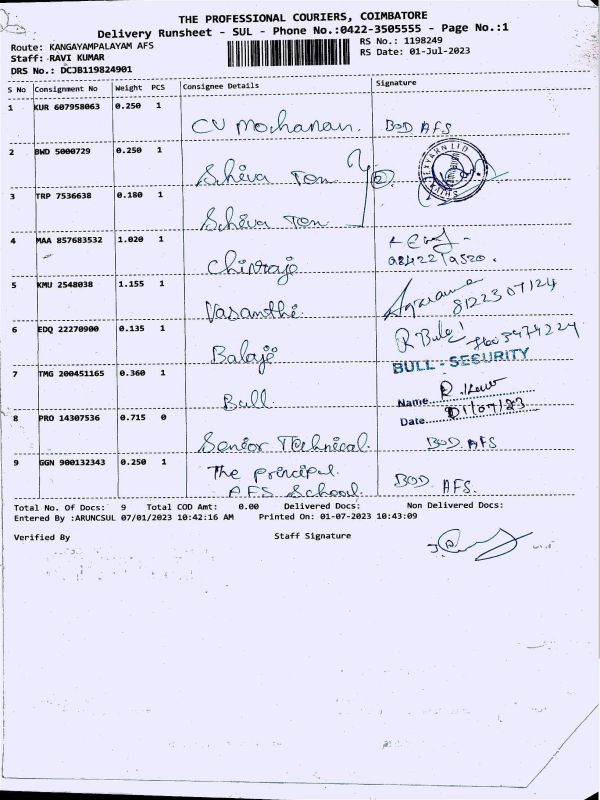 THE PROFESSIONAL COURIERS, COIMBATORE
Delivery Runsheet - SUL - Phone No.:0422-3505555 - Page No.:1
Route: KANGAYAMPALAYAM AFS
RS No.: 1198249
Staff: RAVI KUMAR
RS Date: 01-Jul-2023
DRS No.: DCJB119824901
S No Consignment No Weight PCS Consignee Details Signature
1 KUR 607958063 0.250 1 CV Mohanan. BOD AFS
2 BWD 5000729 0.250 1 Shiva Tex
3 TRP 7536638 0.180 1 Shiva Tex
4 MAA 857683532 1.020 1
5 KMU 2548038 1.155 1 Vasanthi 8122307124
6 EDQ 22270900 0.135 1 Balaji
BULL - SECURITY
7 TMG 200451165 0.360 1 Bull
Name
Date 01/07/23
8 PRO 14307536 0.715 0 Senior Technical. BOD AFS
9 GGN 900132343 0.250 1 The principal.
AFS School BOD AFS.
Total No. Of Docs: 9 Total COD Amt: 0.00 Delivered Docs: Non Delivered Docs:
Entered By :ARUNCSUL 07/01/2023 10:42:16 AM Printed On: 01-07-2023 10:43:09
Verified By Staff Signature